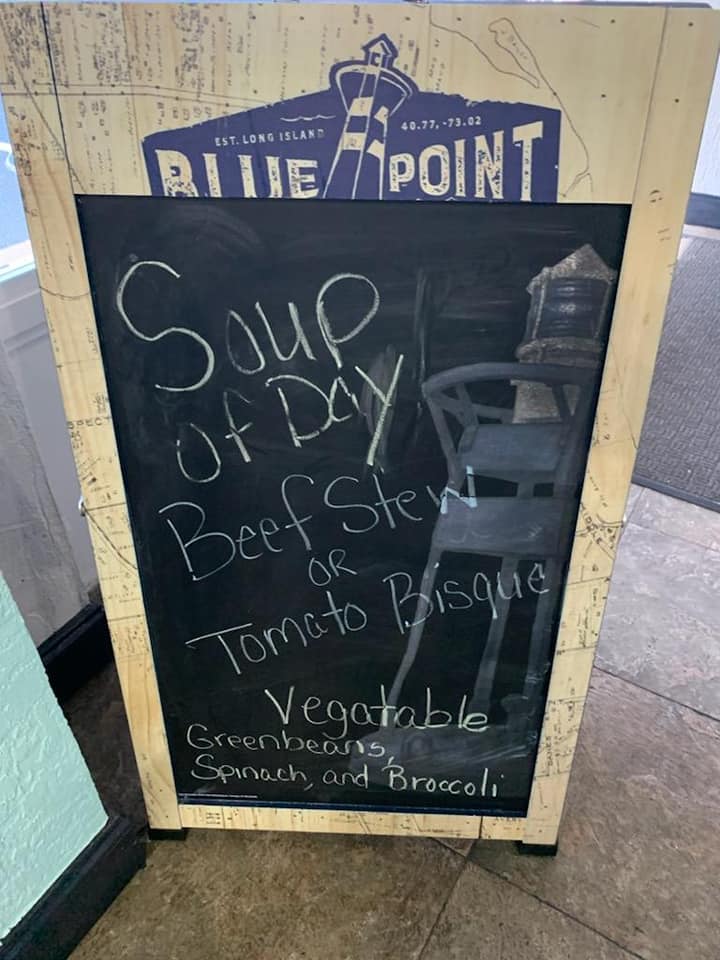 EST. LONG ISLAND
40.77, -73.02
BLUE POINT
Soup
of Day
Beef Stew
OR
Tomato Bisque
Vegatable
Greenbeans,
Spinach, and Broccoli